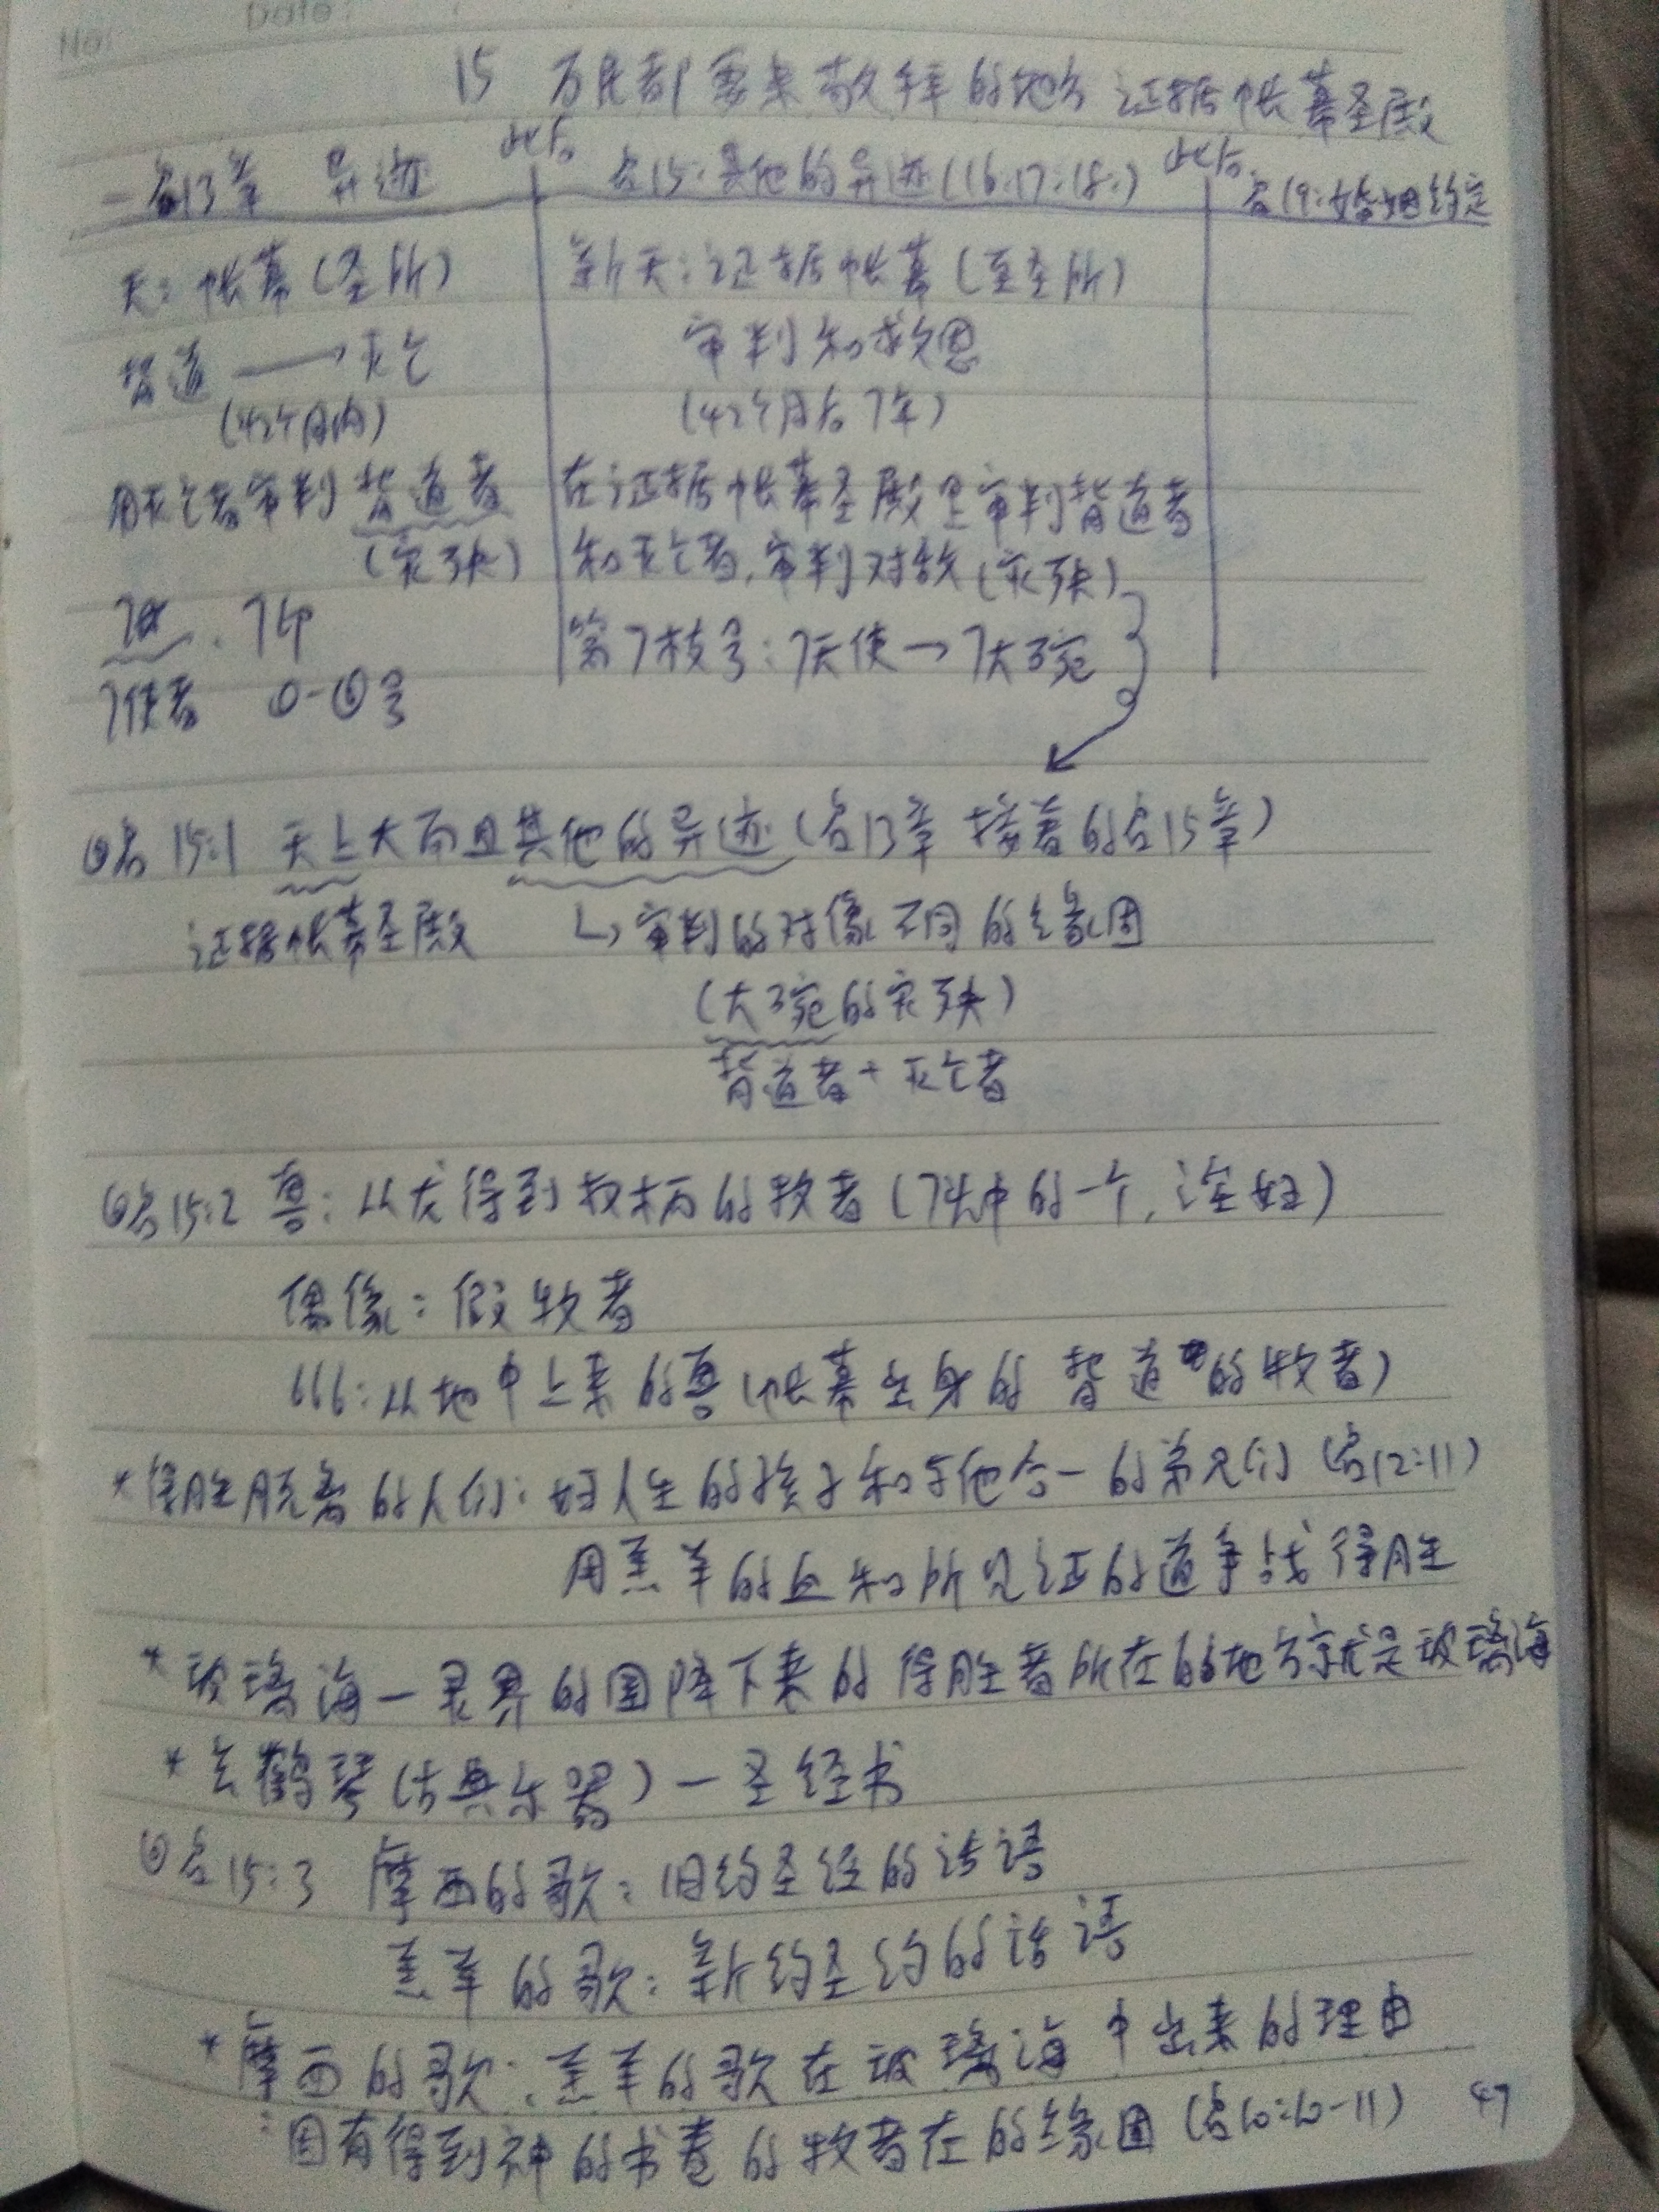 No: Date:
15 万民都要来敬拜的地方 证据帐幕圣殿
一 启13章 异迹 此后 启15:其他的异迹(16.17.18.) 此后 启19:婚姻约定
天:帐幕(圣所) 新天:证据帐幕(至圣所)
背道 → 灭亡 审判和救恩
(42个月内) (42个月后7年)
用灭亡者审判背道者 在证据帐幕圣殿里审判背道者
(灾殃) 和灭亡者,审判对敌(灾殃)
7印 第7枝号:7天使→7大碗
7使者 ①-⑥号
◎启15:1 天上大而且其他的异迹(启13章 接着的启15章)
证据帐幕圣殿 ↳审判的对像不同的缘因
(大碗的灾殃)
背道者+灭亡者
◎启15:2 兽:从龙得到权柄的牧者(7头中的一个,淫妇)
偶像:假牧者
666:从地中上来的兽(帐幕出身的背道的牧者)
*得胜脱离的人们:妇人生的孩子和与他合一的弟兄们(启12:11)
用羔羊的血和所见证的道争战得胜
*玻璃海一灵界的国降下来的得胜者所在的地方就是玻璃海
*玄鹤琴(古典乐器)一圣经书
◎启15:3 摩西的歌:旧约圣经的话语
羔羊的歌:新约圣约的话语
*摩西的歌:羔羊的歌在玻璃海中出来的理由
:因有得到神的书卷的牧者在的缘因(启10:10-11) 47